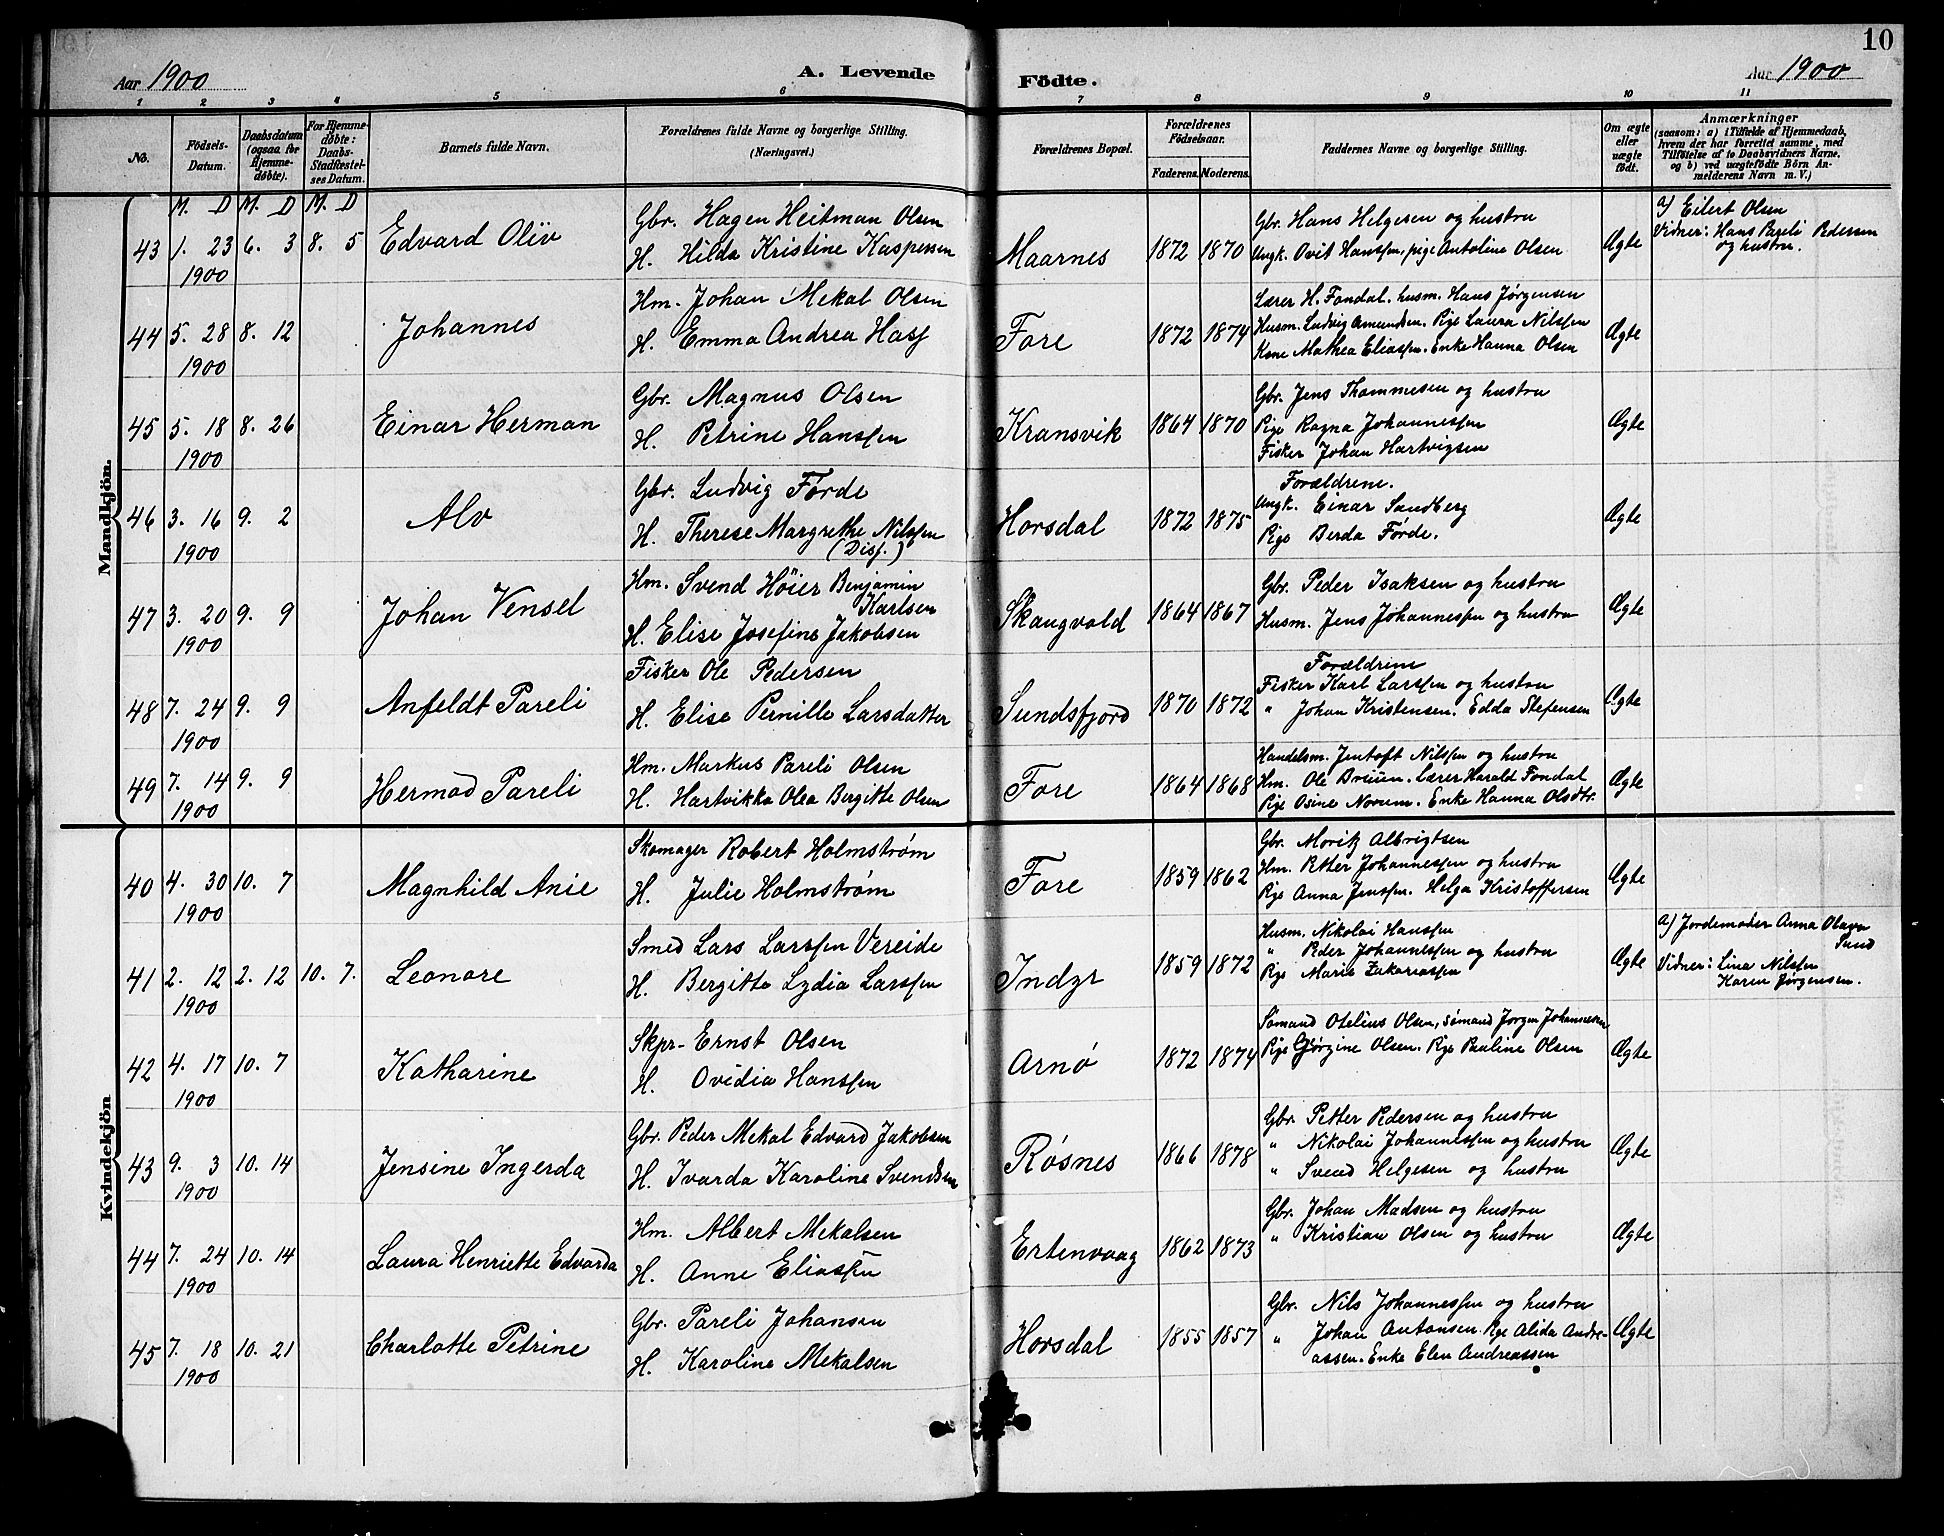 10
Aar 1900 A. Levende Födte. Aar 1900
1 2 3 4 5 6 7 8 9 10 11
No. Födsels-Datum. Daabsdatum (ogsaa for Hjemme-døbte). For Hjemme-døbte: Daabs-Stadfæstelses Datum. Barnets fulde Navn. Forældrenes fulde Navne og borgerlige Stilling. (Næringsvei.) Forældrenes Bopæl. Forældrenes Födselsaar. Faderens. Moderens. Faddernes Navne og borgerlige Stilling. Om ægte eller uægte født. Anmærkninger (saasom: a) i Tilfælde af Hjemmedaab, hvem der har forrettet samme, med Tilføielse af to Daabsvidners Navne, og b) ved uægtefødte Börn Anmelderens Navn m. V.)
Mandkjön.
M. D M. D M. D
43 1. 23 6. 3 8. 5 Edvard Oliv
1900
Gbr. Hagen Heitman Olsen
H. Hilda Kristine Kaspersen
Maarnes 1872 1870
Gbr. Hans Helgesen og hustru
Ungk. Ovit Hanssen, pige Antoline Olsen
Ægte
a) Eilert Olsen
Vidner: Hans Pareli Pedersen
og hustru.
44 5. 28 8. 12 Johannes
1900
Hm. Johan Mekal Olsen
H. Emma Andrea Hasf
Fore 1872 1874
Lærer H. Fondal. husm. Hans Jørgensen
Husm. Ludvig Amundsen. Pige Laura Nilssen
Kone Mathea Eliassen. Enke Hanna Olsen
Ægte
45 5. 18 8. 26 Einar Herman
1900
Gbr. Magnus Olsen
H. Petrine Hanssen
Kransvik 1864 1870
Gbr. Jens Thommesen og hustru
Pige Ragna Johannessen
Fisker Johan Hartvigsen
Ægte
46 3. 16 9. 2 Alv
1900
Gbr. Ludvig Førde
H. Therese Margrethe Nilssen
(Diss.)
Horsdal 1872 1875
Forældrene.
Ungk. Einar Sandberg
Pige Berda Førde.
Ægte
47 3. 20 9. 9 Johan Vensel
1900
Hm. Svend Höier Benjamin
Karlsen
H. Elise Josefine Jakobsen
Skaugvold 1864 1867
Gbr. Peder Isaksen og hustru
Husm. Jens Johannessen og hustru
Ægte
48 7. 24 9. 9 Anfeldt Pareli
1900
Fisker Ole Pedersen
H. Elise Pernille Larsdatter
Sundsfjord 1870 1872
Forældrene
Fisker Karl Larssen og hustru
" Johan Kristensen. Edda Stefensen
Ægte
49 7. 14 9. 9 Hermod Pareli
1900
Hm. Markus Pareli Olsen
H. Hartvikka Olea Bergitte Olsen
Fore 1864 1868
Handelsm. Jentoft Nilssen og hustru
Hm. Ole Breiun. Lærer Harald Fondal
Pige Osine Norum. Enke Hanna Olsdtr.
Ægte
Kvindekjön
40 4. 30 10. 7 Magnhild Anie
1900
Skomager Robert Holmstrøm
H. Julie Holmstrøm
Fore 1859 1862
Gbr. Moritz Albrigtsen
Hm. Petter Johannessen og hustru
Pige Anna Jenssen. Helga Kristoffersen
Ægte
41 2. 12 2. 12 10. 7. Leonore
1900
Smed Lars Larssen Vereide
H. Bergitte Lydia Larssen
Indyr 1859 1872
Husm. Nikolai Hanssen
" Peder Johannessen og hustru
Pige Marie Zakariassen
Ægte
a) Jordemoder Anna Olava
Sund
Vidner: Lina Nilssen
Karen Jørgensen.
42 4. 17 10. 7 Katharine
1900
Skpr- Ernst Olsen
H. Ovidia Hanssen
Arnø 1872 1874
Sømand Otelius Olsen, sømand Jørgen Johannesen
Pige Gjørgine Olsen. Pige Pauline Olsen
Ægte
43 9. 3 10. 14 Jensine Ingerda
1900
Gbr. Peder Mekal Edvard Jakobsen
H. Ivarda Karoline Svendsen
Røsnes 1866 1878
Gbr. Petter Pedersen og hustru
" Nikolai Johannessen og hustru
" Svend Helgesen og hustru
Ægte
44 7. 24 10. 14 Laura Henriette Edvarda
1900
Hm. Albert Mekalsen
H. Anne Eliassen
Ertenvaag 1862 1873
Gbr. Johan Madsen og hustru
" Kristian Olsen og hustru
Ægte
45 7. 18 10. 21 Charlotte Petrine
1900
Gbr. Pareli Johansen
H. Karoline Mekalsen
Horsdal 1855 1857
Gbr. Nils Johannessen og hustru
" Johan Antonsen. Pige Alida Andre-
assen. Enke Elen Andreassen
Ægte